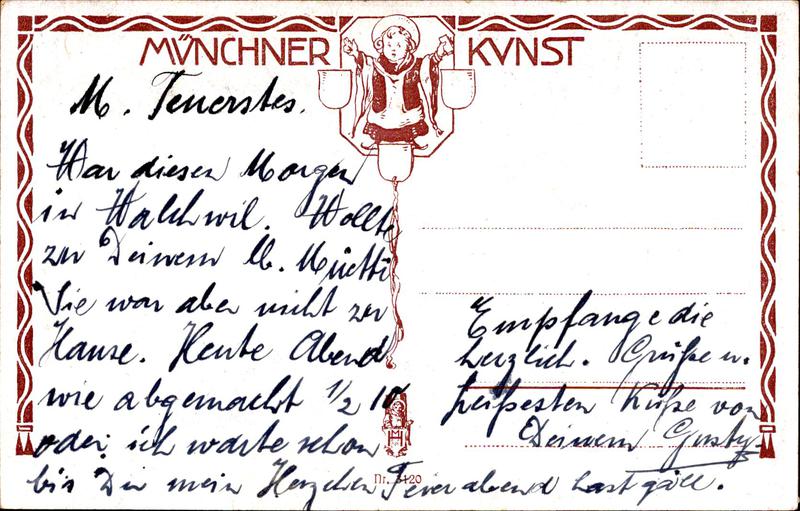 MÜNCHNER KVNST
M. Teuerstes.
War diesen Morgen
in Walchwil. Wollte
zu Deinem lb. Müetti
Sie war aber nicht zu
Hause. Heute Abend
wie abgemacht 1/2 10
oder ich warte schon
bis Du mein Herzchen Feierabend hast gäll.
Empfange die
herzlich. Grüße u.
heißesten Küße von
Deinem Gusty.
Nr. 3120